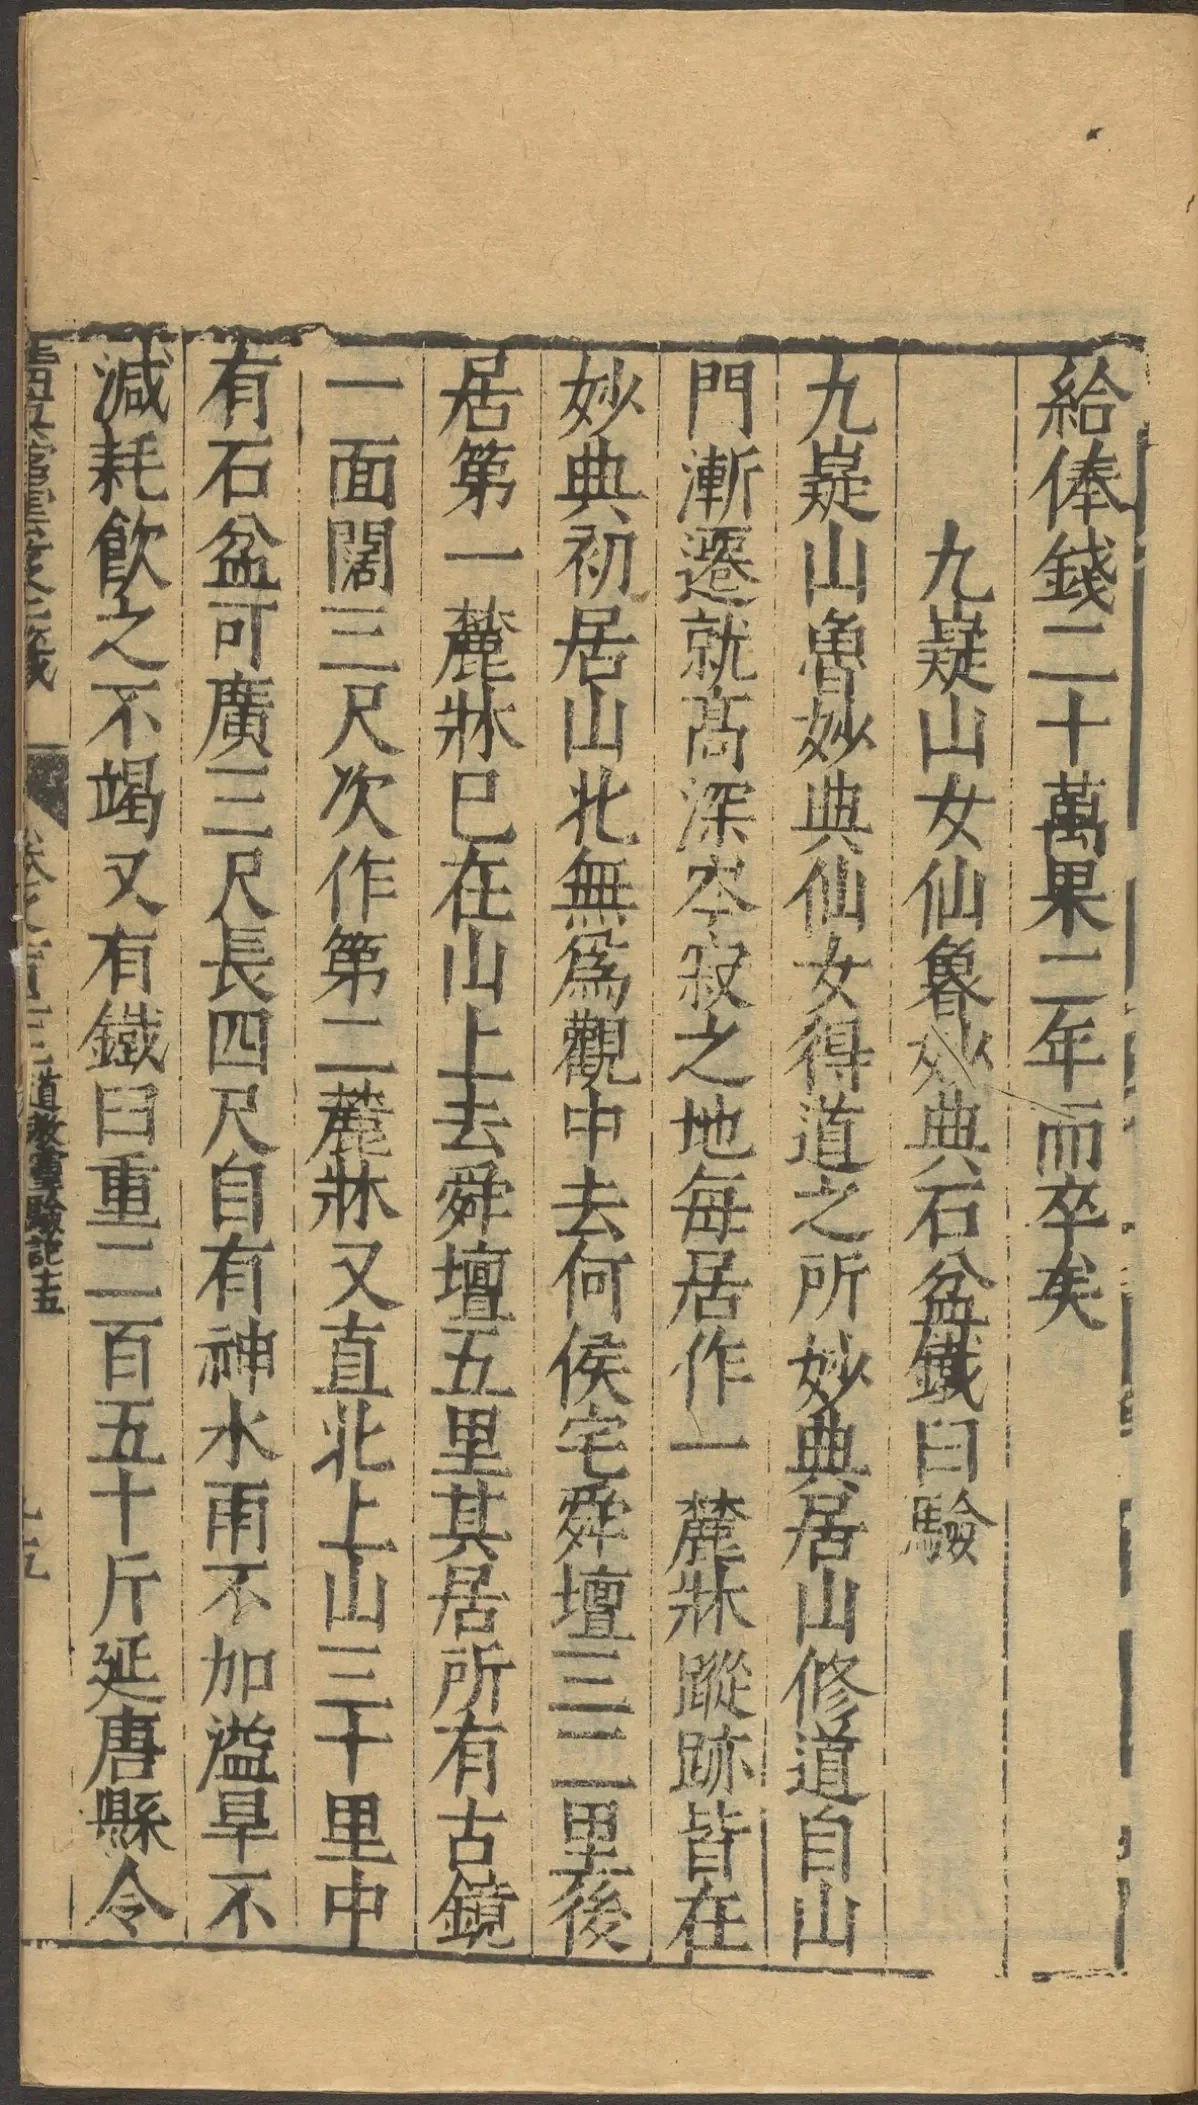 給俸錢二十萬果二年而卒矣
九嶷山女仙魯妙典石盆鐵臼驗
九嶷山魯妙典仙女得道之所妙典居山修道自山
門漸遷就高深岑寂之地每居作一麓牀蹤跡皆在
妙典初居山北無爲觀中去何侯宅舜壇三二里後
居第一麓牀巳在山上去舜壇五里其居所有古鏡
一面闊三尺次作第二麓牀又直北上山三十里中
有石盆可廣三尺長四尺自有神水雨不加溢旱不
減耗飲之不竭又有鐵臼重二百五十斤延唐縣令
道教靈驗記